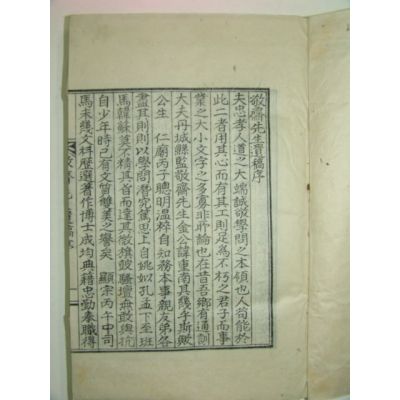 敬齋先生實稿序
夫忠孝人道之大端誠敬學問之本領也人苟能於
此二者用其心而有其工則足爲不朽之君子而事
業之大小文字之多寡非所論也在昔吾鄕有通訓
大夫丹城縣監敬齋先生金公諱重南其幾乎斯歟
公生 仁廟丙子聰明溫粹自知務本事親友弟各
盡其則則以學問潛究篤思上自姚姒孔孟下至班
馬韓蘇莫不精其旨而達其微旗鼓騷壇無敢與抗
自少年時已有文質雙美之譽矣 顯宗丙午中司
馬未幾文科歷選著作博士成均典籍忠勤奉職得